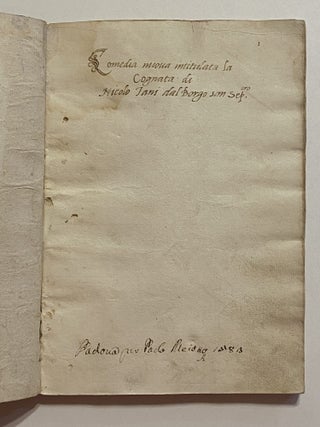 Comedia nuova intitulata la
Cognata di
Nicolo Tani dal Borgo san Sep.ro
Padova per Paolo 1583